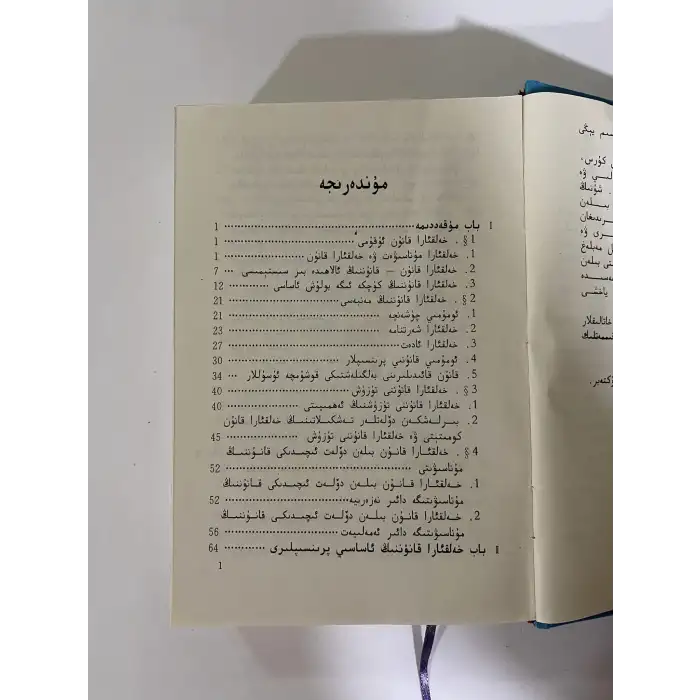 مۇندەرىجە
I باب مۇقەددىمە ............ 1
§1. خەلقئارا قانۇن ئۇقۇمى ............ 1
1. خەلقئارا مۇناسىۋەت ۋە خەلقئارا قانۇن ............ 1
2. خەلقئارا قانۇن — قانۇننىڭ ئالاھىدە بىر سىستېمىسى ............ 7
3. خەلقئارا قانۇننىڭ كۈچكە ئىگە بولۇش ئاساسى ............ 12
§2. خەلقئارا قانۇننىڭ مەنبەسى ............ 21
1. ئومۇمىي چۈشەنچە ............ 21
2. خەلقئارا شەرتنامە ............ 23
3. خەلقئارا ئادەت ............ 27
4. ئومۇمىي قانۇنىي پرىنسىپلار ............ 30
5. قانۇن قائىدىلىرىنى بەلگىلەشتىكى قوشۇمچە ئۇسۇللار ............ 34
§3. خەلقئارا قانۇننى تۈزۈش ............ 40
1. خەلقئارا قانۇننى تۈزۈشنىڭ ئەھمىيىتى ............ 40
2. بىرلەشكەن دۆلەتلەر تەشكىلاتىنىڭ خەلقئارا قانۇن
كومىتېتى ۋە خەلقئارا قانۇننى تۈزۈش ............ 45
§4. خەلقئارا قانۇن بىلەن دۆلەت ئىچىدىكى قانۇننىڭ
مۇناسىۋىتى ............ 52
1. خەلقئارا قانۇن بىلەن دۆلەت ئىچىدىكى قانۇننىڭ
مۇناسىۋىتىگە دائىر نەزەرىيە ............ 52
2. خەلقئارا قانۇن بىلەن دۆلەت ئىچىدىكى قانۇننىڭ
مۇناسىۋىتىگە دائىر ئەمەلىيەت ............ 56
II باب خەلقئارا قانۇننىڭ ئاساسىي پرىنسىپلىرى ............ 64
1
كۇرس.
ۋە
شۇنىڭ
بىلەن
ۋە
مەبلەغ
بىلەن
ياخشى